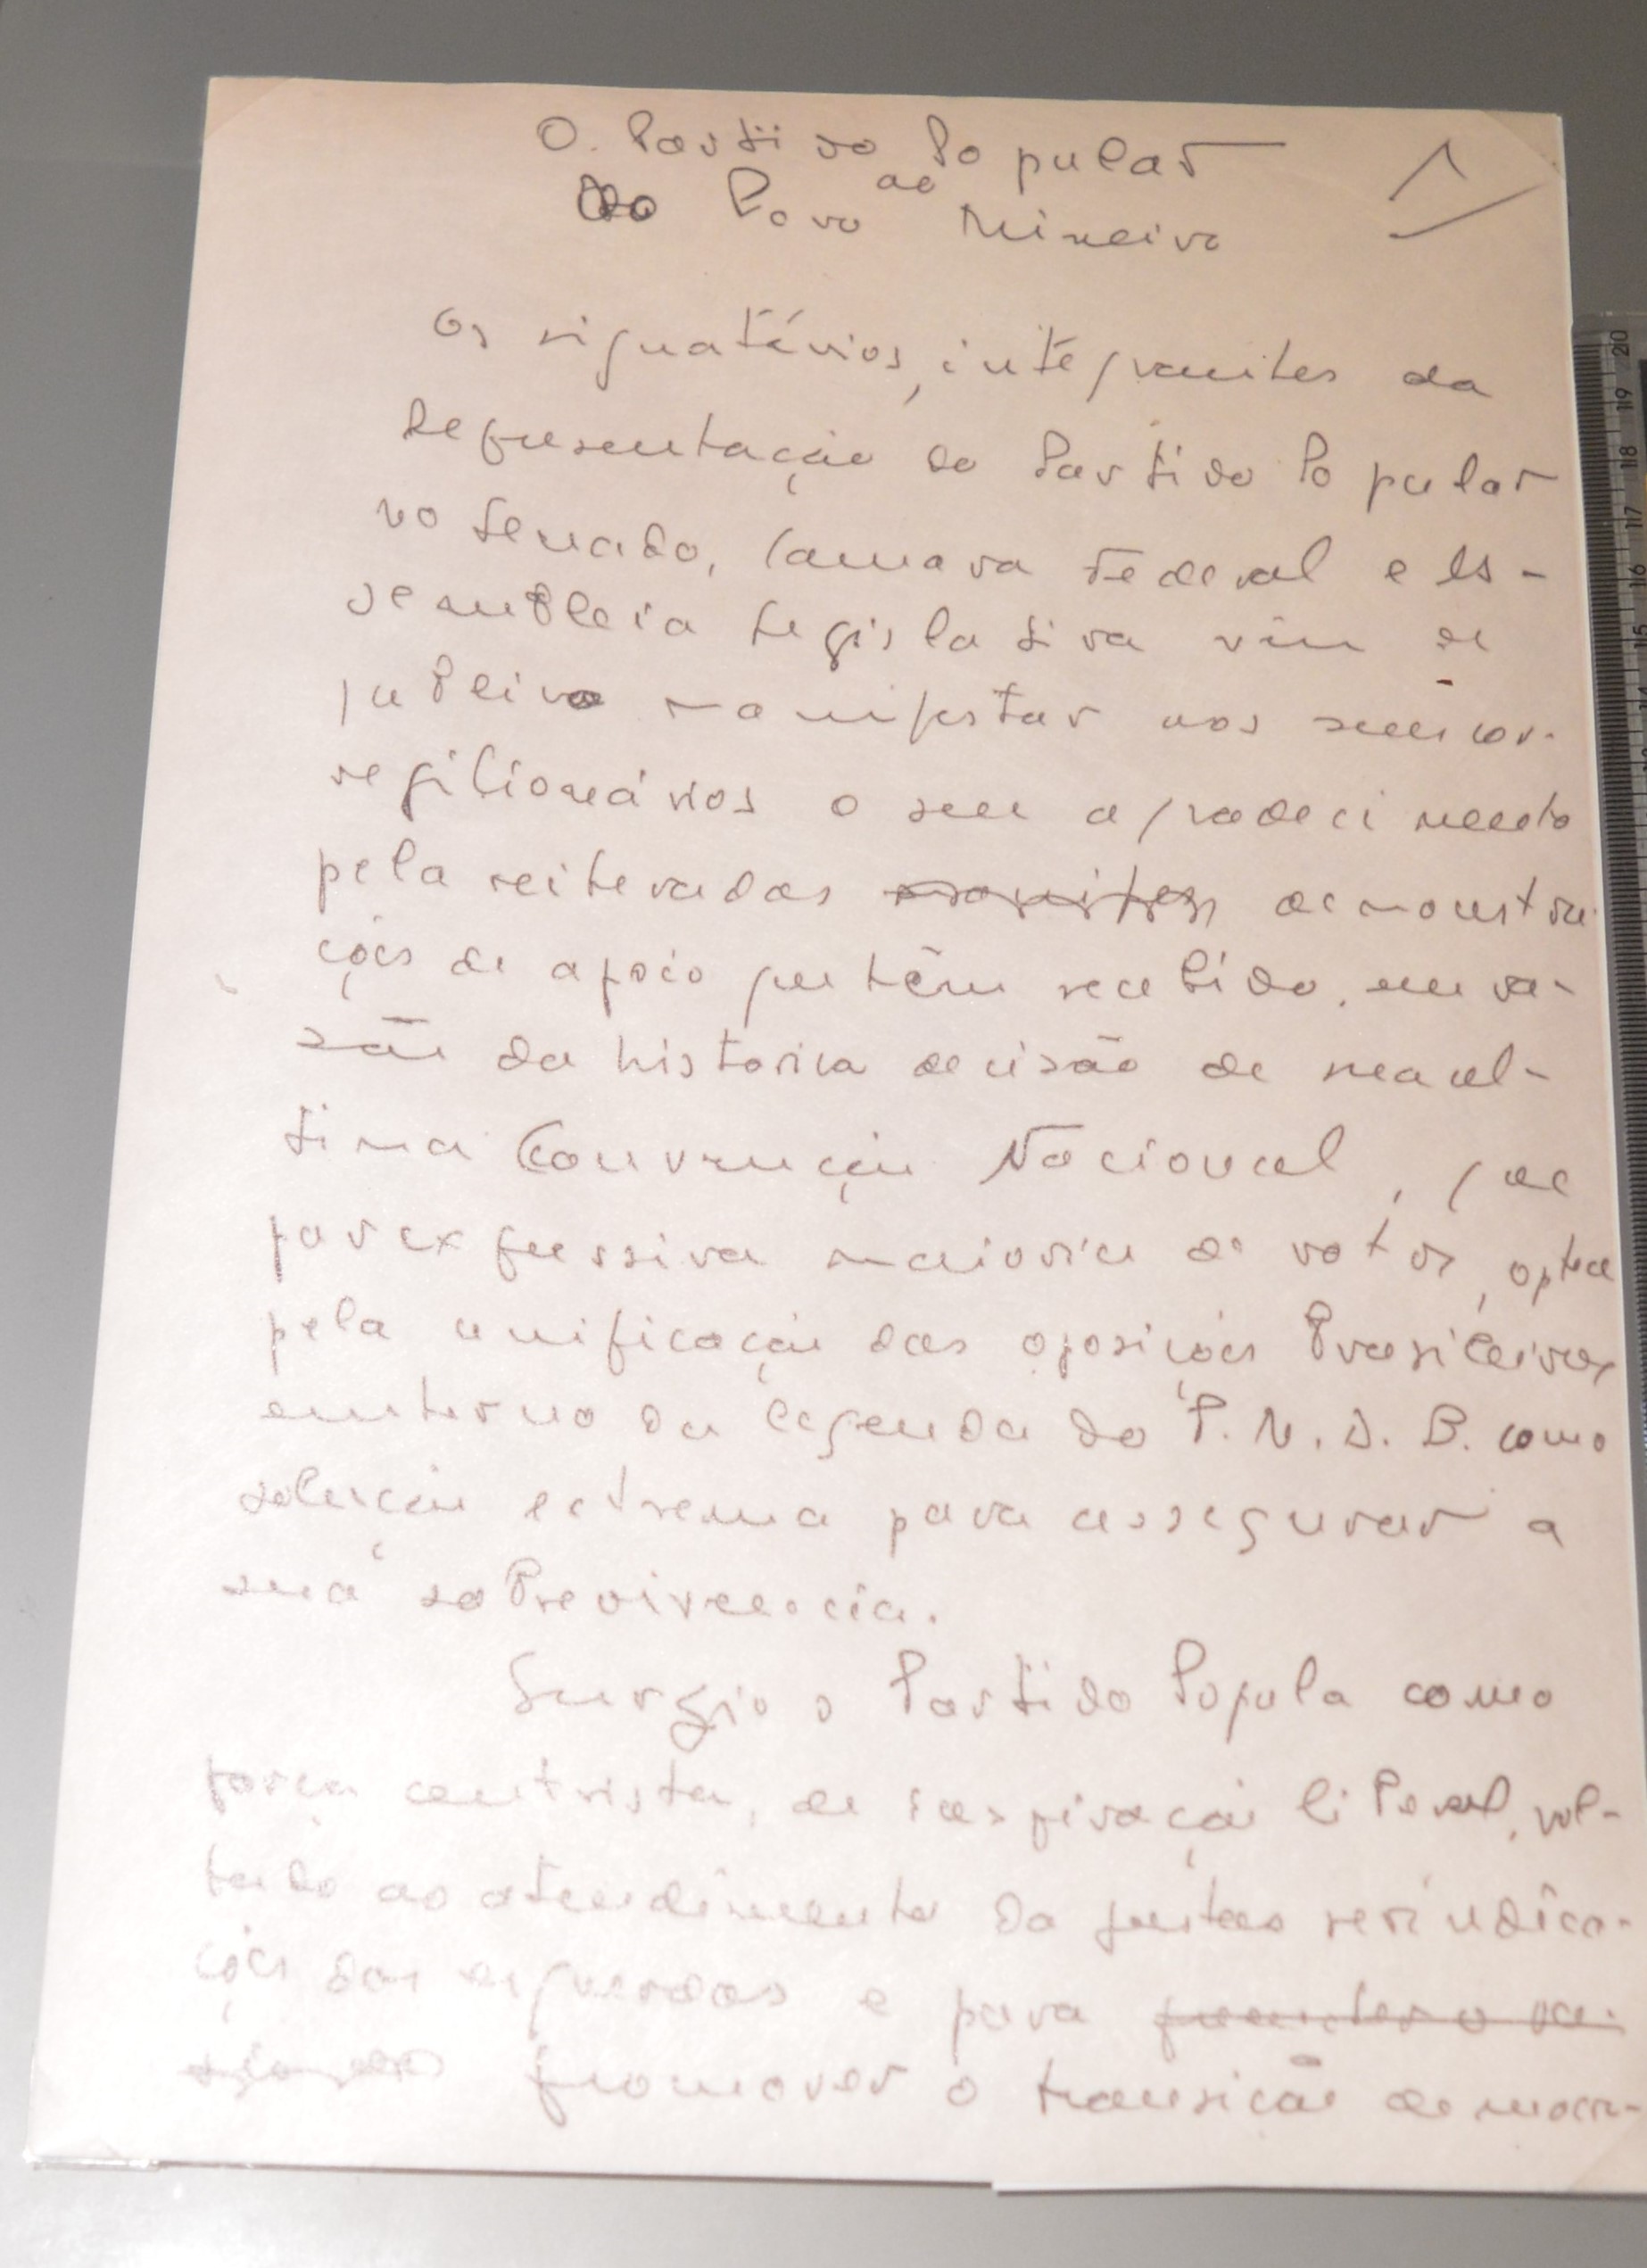 O. Partido Popular
ao
Povo Mineiro
1
Os signatários, integrantes da
Representação do Partido Popular
no Senado, Camara Federal e As-
sembleia Legislativa vêm de
publico manifestar aos seus cor-
religionários o seu agradecimento
pela reiteradas demonstra-
ções de apoio que têm recebido, em ra-
zão da historica decisão de sua ul-
tima Convenção Nacional, que
por expressiva maioria de votos, optou
pela unificação das oposições Brasileiras
em torno da legenda do P.M.D.B. como
solução extrema para assegurar a
sua sobrevivencia.
Surgio o Partido Popula como
força centrista, de inspiração liberal, vol-
tado ao atendimento da justas reivindica-
ções das esquerdas e para
promover a transição democra-